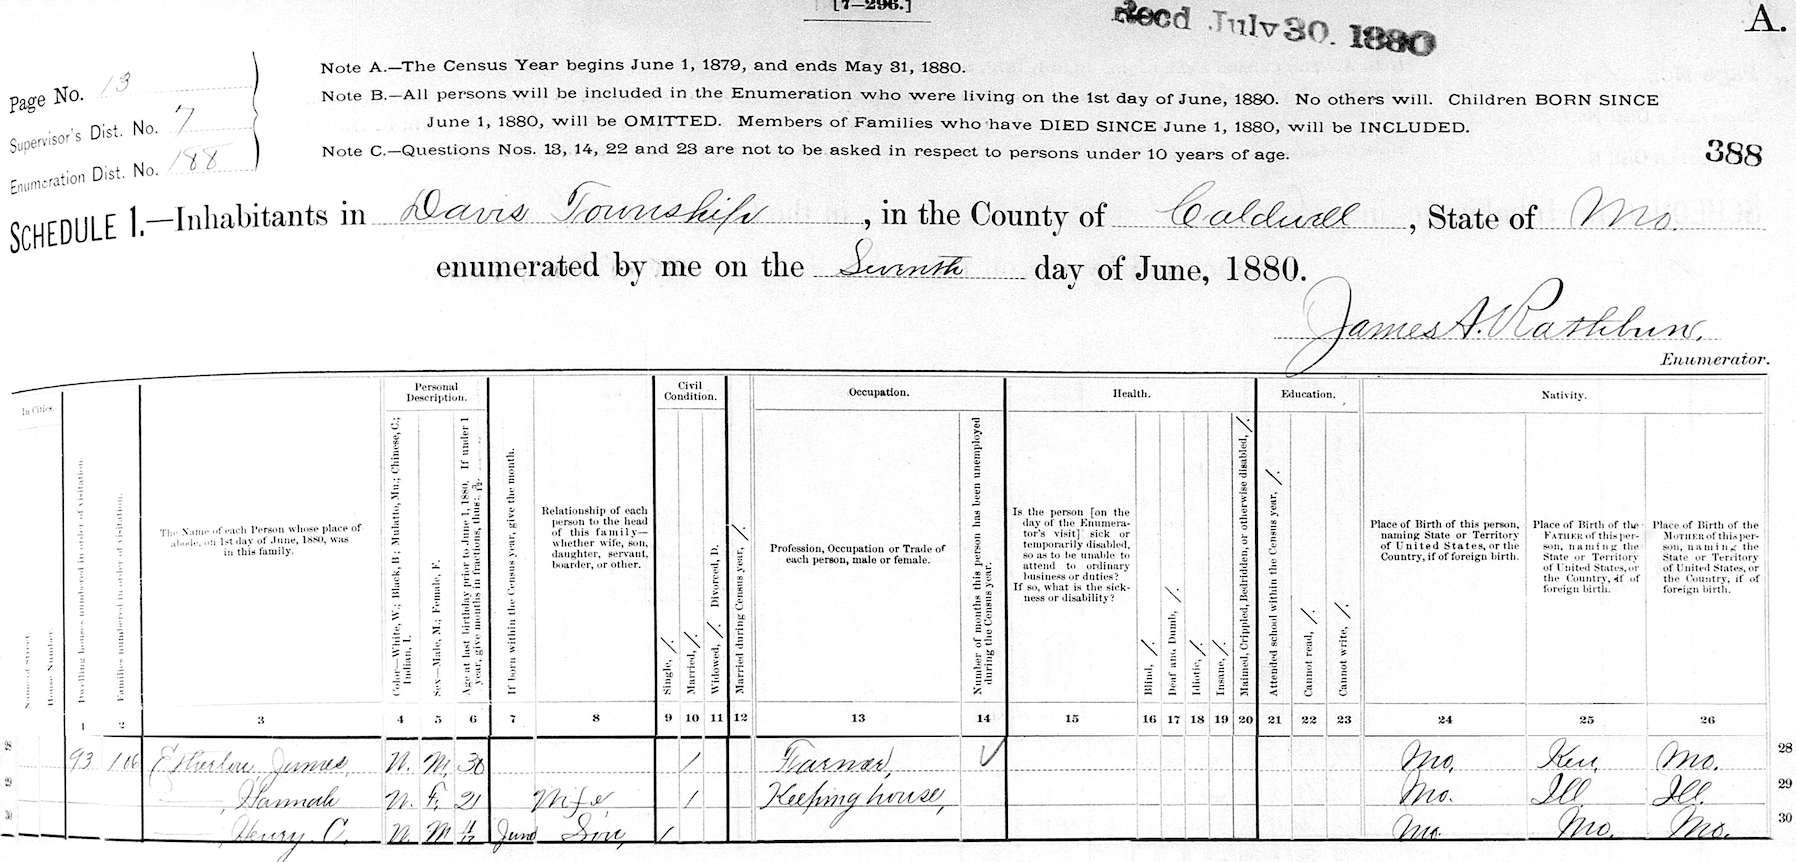 [7—296.]
Recd July 30. 1880
A.
Page No. 13
Supervisor's Dist. No. 7
Enumeration Dist. No. 188
Note A.—The Census Year begins June 1, 1879, and ends May 31, 1880.
Note B.—All persons will be included in the Enumeration who were living on the 1st day of June, 1880. No others will. Children BORN SINCE
June 1, 1880, will be OMITTED. Members of Families who have DIED SINCE June 1, 1880, will be INCLUDED.
Note C.—Questions Nos. 13, 14, 22 and 23 are not to be asked in respect to persons under 10 years of age.
388
SCHEDULE 1.—Inhabitants in Davis Township, in the County of Caldwell, State of Mo.
enumerated by me on the Seventh day of June, 1880.
James A. Rathbun,
Enumerator.
In Cities.
Name of Street.
House Number.
Dwelling houses numbered in order of visitation.
Families numbered in order of visitation.
The Name of each Person whose place of
abode, on 1st day of June, 1880, was
in this family.
Personal
Description.
Color—White, W.; Black, B.; Mulatto, Mu.; Chinese, C.;
Indian, I.
Sex—Male, M.; Female, F.
Age at last birthday prior to June 1, 1880. If under 1
year, give months in fractions, thus: 3/12.
If born within the Census year, give the month.
Relationship of each
person to the head
of this family—
whether wife, son,
daughter, servant,
boarder, or other.
Civil
Condition.
Single, /.
Married, /.
Widowed, /. Divorced, D.
Married during Census year, /.
Occupation.
Profession, Occupation or Trade of
each person, male or female.
Number of months this person has been unemployed
during the Census year.
Health.
Is the person [on the
day of the Enumera-
tor's visit] sick or
temporarily disabled,
so as to be unable to
attend to ordinary
business or duties?
If so, what is the sick-
ness or disability?
Blind, /.
Deaf and Dumb, /.
Idiotic, /.
Insane, /.
Maimed, Crippled, Bedridden, or otherwise disabled, /.
Education.
Attended school within the Census year, /.
Cannot read, /.
Cannot write, /.
Nativity.
Place of Birth of this person,
naming State or Territory
of United States, or the
Country, if of foreign birth.
Place of Birth of the
FATHER of this per-
son, naming the
State or Territory
of United States, or
the Country, if of
foreign birth.
Place of Birth of the
MOTHER of this per-
son, naming the
State or Territory
of United States, or
the Country, if of
foreign birth.
1 2 3 4 5 6 7 8 9 10 11 12 13 14 15 16 17 18 19 20 21 22 23 24 25 26
28 93 106 James, W. M. 30 / Farmer, Mo. Ken. Mo. 28
29 — , Hannah W. F. 21 Wife / Keeping house, Mo. Ill. Ill. 29
30 — , Henry C. W. M 11/12 June Son, / Mo. Mo. Mo. 30